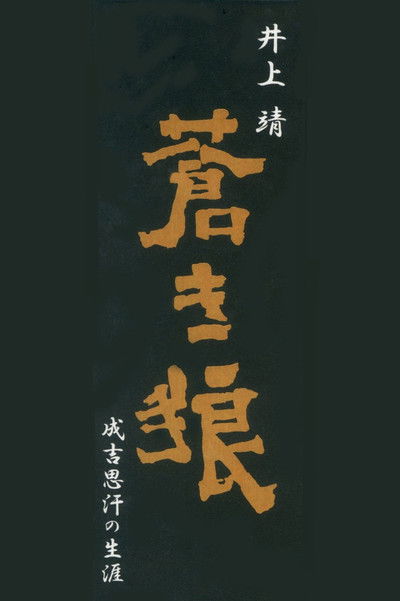 井上 靖
蒼き狼
成吉思汗の生涯